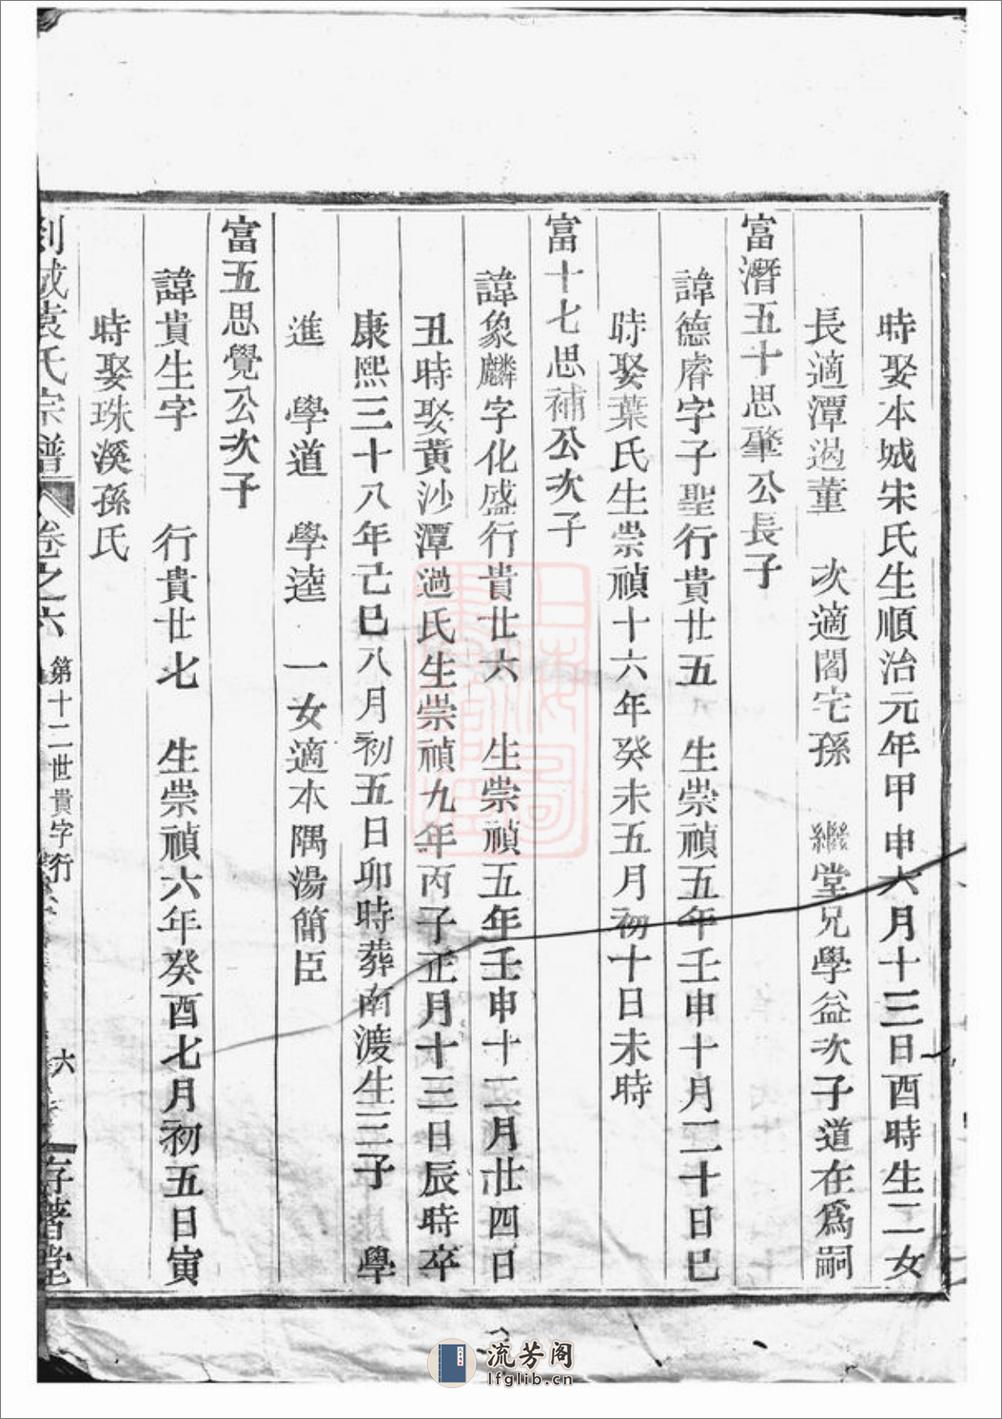 時娶本城宋氏生順治元年甲申六月十三日酉時生二女
長適潭遏董　次適閣宅孫　繼堂兄學益次子道在爲嗣
富潛五十思肇公長子
諱德睿字子聖行貴廿五　生崇禎五年壬申十月二十日巳
時娶葉氏生崇禎十六年癸未五月初十日未時
富十七思補公次子
諱象麟字化盛行貴廿六　生崇禎五年壬申十二月廿四日
丑時娶黃沙潭過氏生崇禎九年丙子正月十三日辰時卒
康熙三十八年己巳八月初五日卯時葬南渡生三子　學
進　學道　學逵　一女適本隅湯簡臣
富五思覺公次子
諱貴生字　　行貴廿七　生崇禎六年癸酉七月初五日寅
時娶珠溪孫氏
剡城袁氏宗譜　卷之六　第十二世貴字行　六　存著堂
流芳阁
lfglib.cn